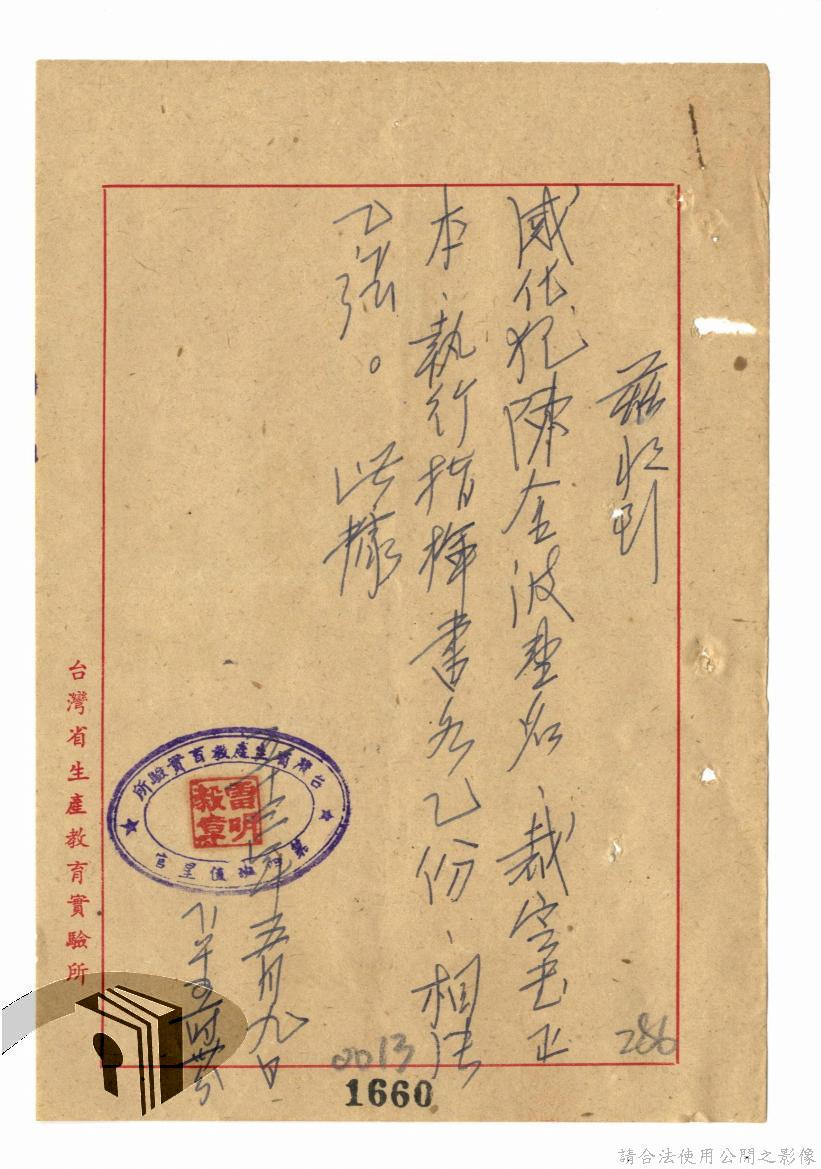 茲收到
感化犯陳金波壹名、裁定書正
本、執行指揮書各乙份、相片
乙張。此據
五十三年五月九日
下午四時廿分
台灣省生產教育實驗所
台灣省生產教育實驗所
值星官
雷明
286
0013
1660
請合法使用公開之影像